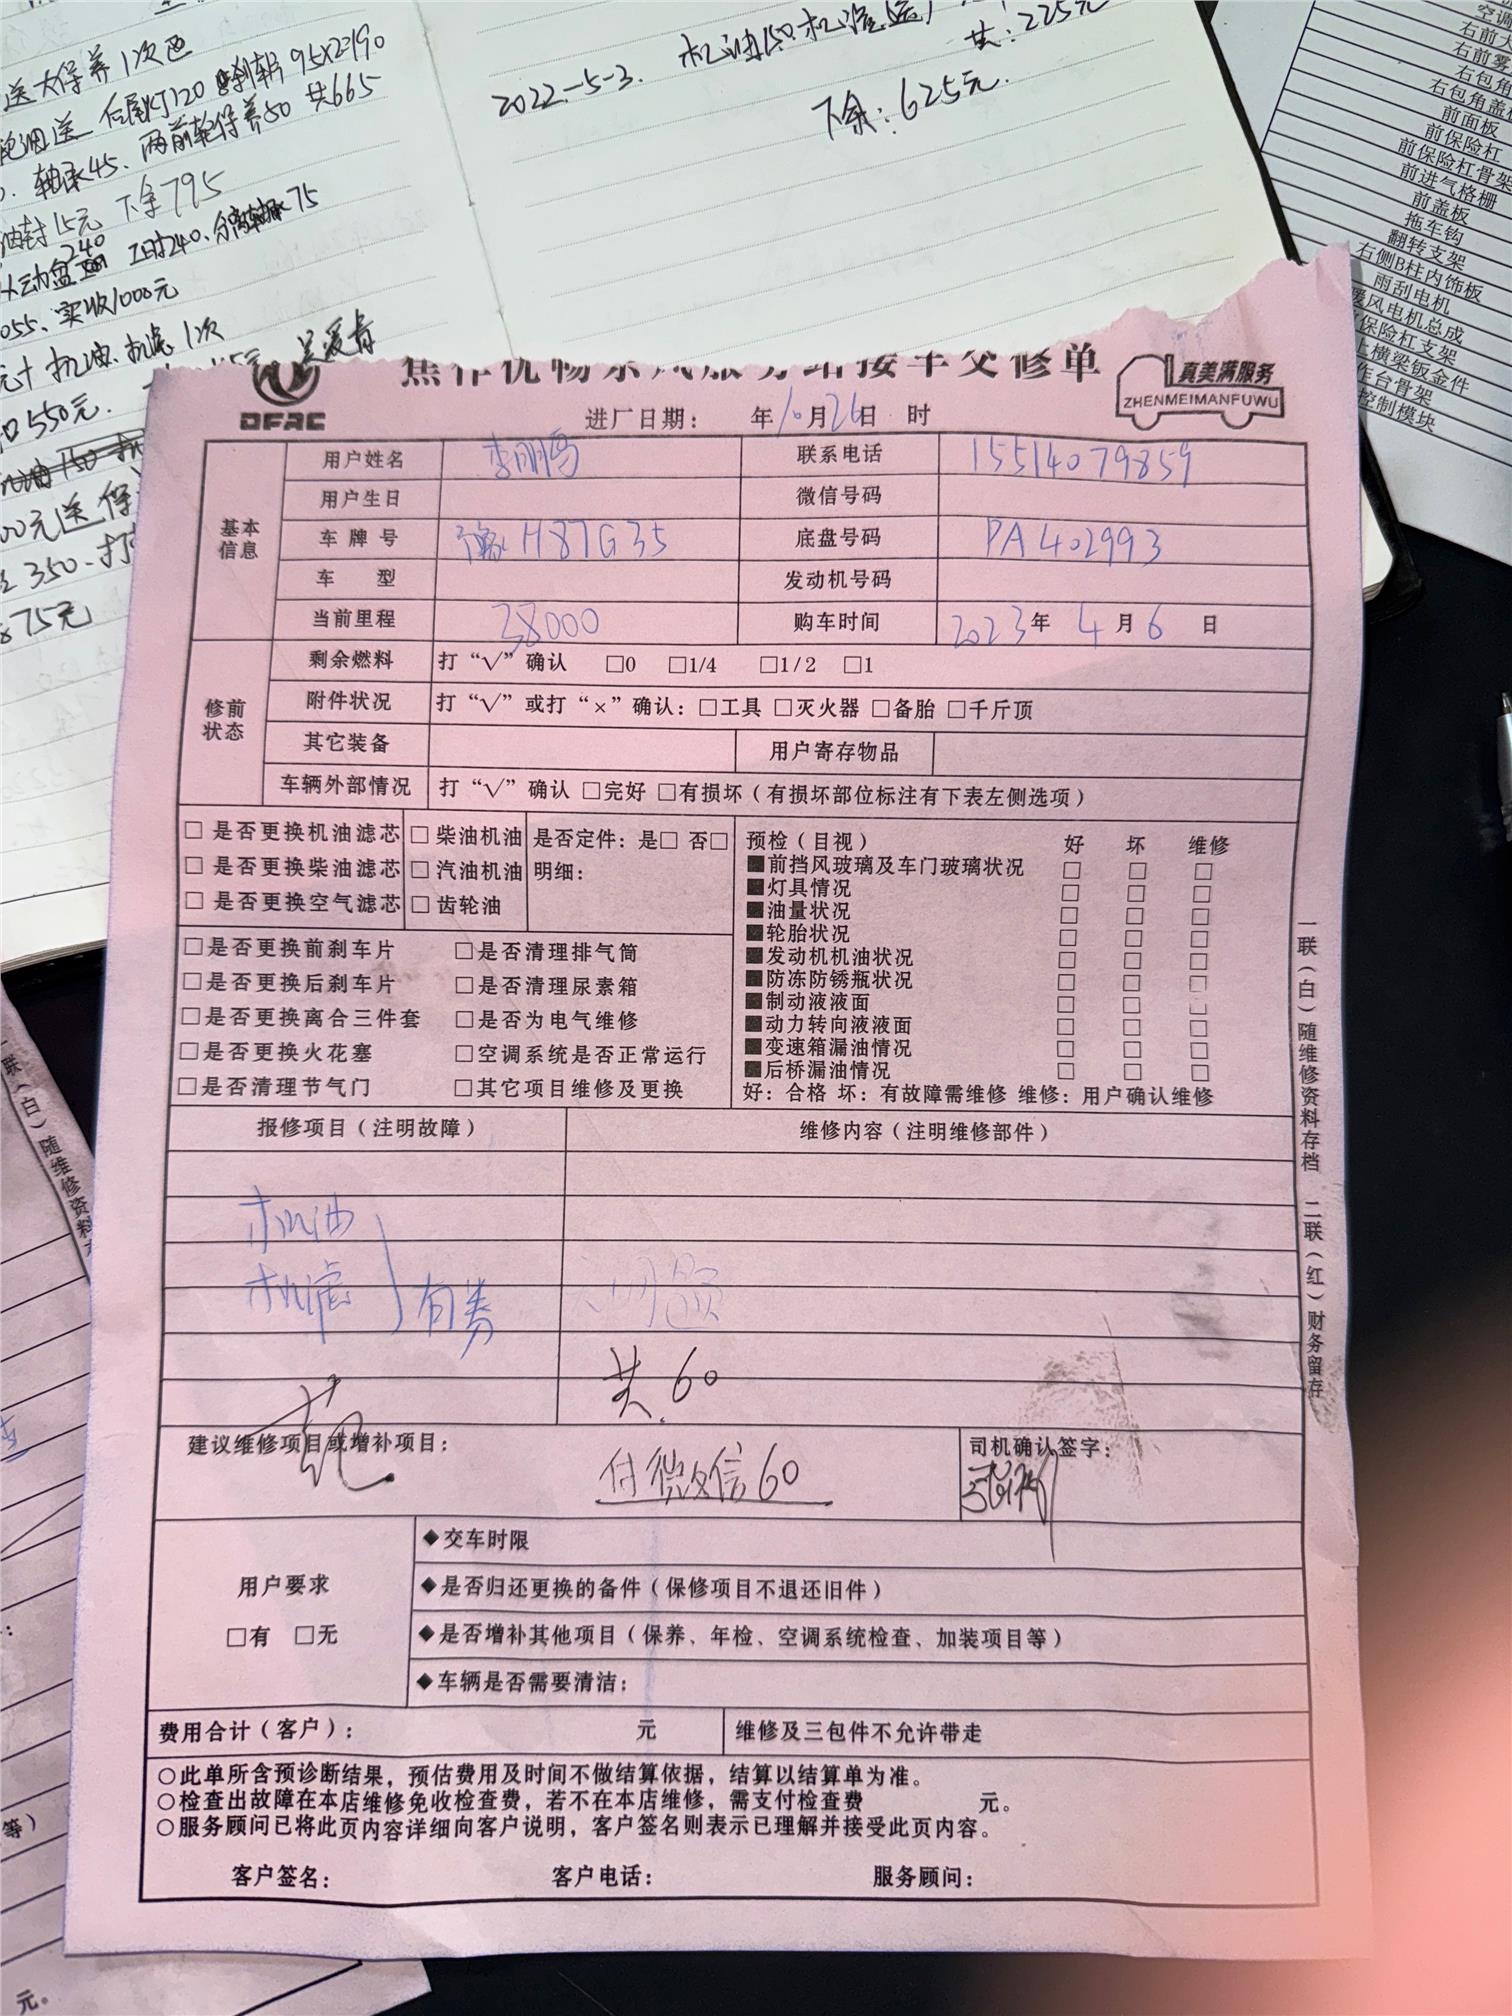 送大保养1次
后尾灯120 刹车片 95X2=190
轴承45. 两前轮保养50 共665
油封15元 下余795
240
工时240、分离轴承75
055、实收1000元
元+机油、机滤1次
550元.
00元送保
350.
75元
2022.-5-3.
共：225元
下余：625元.
空调
右前大
右前雾
右包角
右包角盖板
前面板
前保险杠
前保险杠骨架
前进气格栅
前盖板
拖车钩
翻转支架
右侧B柱内饰板
雨刮电机
暖风电机总成
保险杠支架
上横梁钣金件
作台骨架
控制模块
焦作优畅东风服务站接车交修单
DFAC
真美满服务
ZHENMEIMANFUWU
进厂日期： 年10月26日 时
基本信息
用户姓名 联系电话 15514079859
用户生日 微信号码
车牌号 豫H87G35 底盘号码 PA402993
车 型 发动机号码
当前里程 38000 购车时间 2023年4月6日
修前状态
剩余燃料 打“√”确认 □0 □1/4 □1/2 □1
附件状况 打“√”或打“×”确认：□工具 □灭火器 □备胎 □千斤顶
其它装备 用户寄存物品
车辆外部情况 打“√”确认 □完好 □有损坏（有损坏部位标注有下表左侧选项）
□是否更换机油滤芯 □柴油机油 是否定件：是□ 否□
□是否更换柴油滤芯 □汽油机油 明细：
□是否更换空气滤芯 □齿轮油
□是否更换前刹车片 □是否清理排气筒
□是否更换后刹车片 □是否清理尿素箱
□是否更换离合三件套 □是否为电气维修
□是否更换火花塞 □空调系统是否正常运行
□是否清理节气门 □其它项目维修及更换
预检（目视） 好 坏 维修
■前挡风玻璃及车门玻璃状况 □ □ □
■灯具情况 □ □ □
■油量状况 □ □ □
■轮胎状况 □ □ □
■发动机机油状况 □ □ □
■防冻防锈瓶状况 □ □ □
■制动液液面 □ □ □
■动力转向液液面 □ □ □
■变速箱漏油情况 □ □ □
■后桥漏油情况 □ □ □
好：合格 坏：有故障需维修 维修：用户确认维修
报修项目（注明故障） 维修内容（注明维修部件）
机油
机滤 有券
共.60
建议维修项目或增补项目：
付微信60
司机确认签字：
用户要求
□有 □无
◆交车时限
◆是否归还更换的备件（保修项目不退还旧件）
◆是否增补其他项目（保养、年检、空调系统检查、加装项目等）
◆车辆是否需要清洁：
费用合计（客户）： 元 维修及三包件不允许带走
○此单所含预诊断结果，预估费用及时间不做结算依据，结算以结算单为准。
○检查出故障在本店维修免收检查费，若不在本店维修，需支付检查费 元。
○服务顾问已将此页内容详细向客户说明，客户签名则表示已理解并接受此页内容。
客户签名： 客户电话： 服务顾问：
一联（白）随维修资料存档 二联（红）财务留存
一联（白）随维修资料
等）
元。